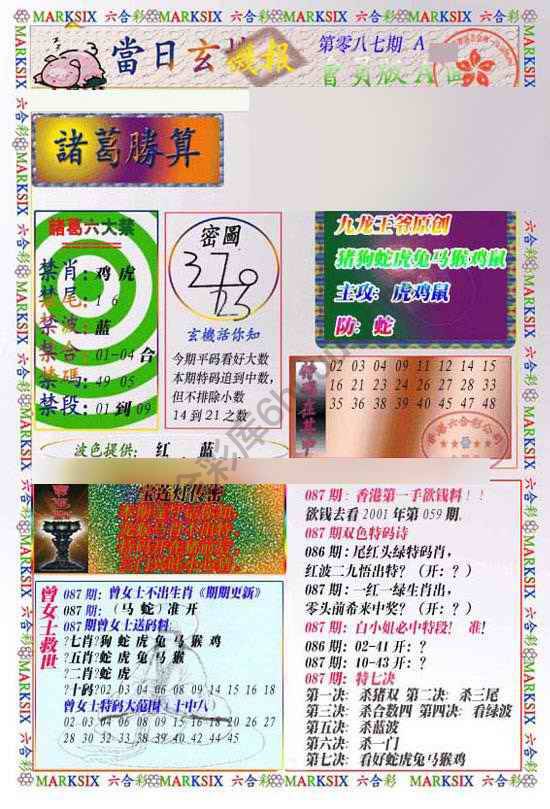 MARKSIX 六合彩 MARKSIX 六合彩 MARKSIX 六合彩 MARKSIX
當日玄機報
第零八七期 A
會員版A面
諸葛勝算
諸葛六大禁
禁肖:鸡 虎
禁尾:1 6
禁波:蓝
禁合:01-04 合
禁碼:49 05
禁段:01 到 09
密圖
玄機活你知
今期平码看好大数
本期特码追到中数,
但不排除小数
14 到 21 之数
九龙王爷原创
猪狗蛇虎兔马猴鸡鼠
主攻: 虎鸡鼠
防: 蛇
02 03 04 09 11 12 14 15
16 21 23 24 26 27 28 33
35 36 38 39 40 45 47 48
波色提供: 红 蓝
宝莲灯传密
曾女士救世
087 期: 曾女士不出生肖《期期更新》
087 期: (马 蛇) 准 开
087 期曾女士送码料:
?七肖?狗 蛇 虎 兔 马 猴 鸡
?五肖?蛇 虎 兔 马 猴
?二肖?蛇 虎
?十码?02 03 04 06 08 09 14 15 16 18
曾女士特码大范围 (十中八)
02 03 04 06 08 09 15 16 18 20 26 27
28 30 32 35 38 39 40 42 44 45
087 期: 香港第一手欲钱料!!
欲钱去看 2001 年第 059 期.
087 期双色特码诗
086 期: 尾红头绿特码肖,
红波二九悟出特? (开: ? )
087 期: 一红一绿生肖出,
零头前希来中奖? (开: ? )
087 期: 白小姐必中特段! 准!
086 期: 02-41 开: ?
087 期: 10-43 开: ?
087 期: 特七决
第一决: 杀猪双 第二决: 杀三尾
第三决: 杀合数四 第四决: 看绿波
第五决: 杀蓝波
第六决: 杀一门
第七决: 看好蛇虎兔马猴鸡
MARKSIX 六合彩 MARKSIX 六合彩 MARKSIX 六合彩 MARKSIX